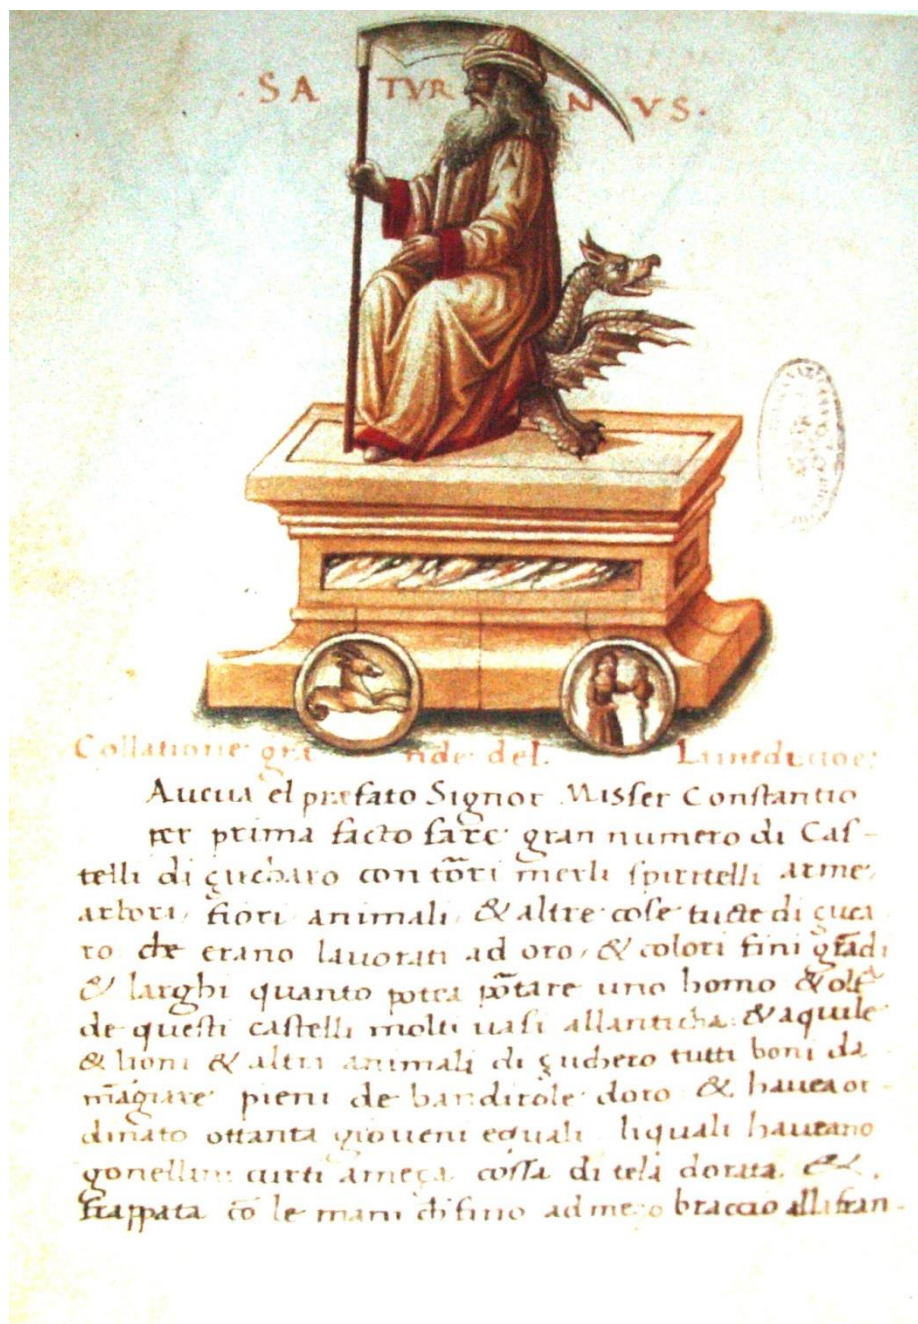 · SATVRNVS ·
Collatione grande del. Lunedi
Aveua el prefato Signor Misser Constantio
per prima facto fare gran numero di Cas-
telli di zucharo con tōrri merli spiritelli arme,
arbori, fiori animali, & altre cose tucte di zuca
ro che erano lauorati ad oro, & colori fini grādi
& larghi quanto potea pōtare uno homo & oltr
de questi castelli molti uasi allanticha & aquile
& lioni & altri animali di zuchero tutti boni da
māgiare pieni de bandirole doro & haueaor-
dinato ottanta gioueni equali liquali haueano
gonellini curti ameça cossa di tela dorata &
frappata cō le mani chi fino ad mezo braccio alli fran-